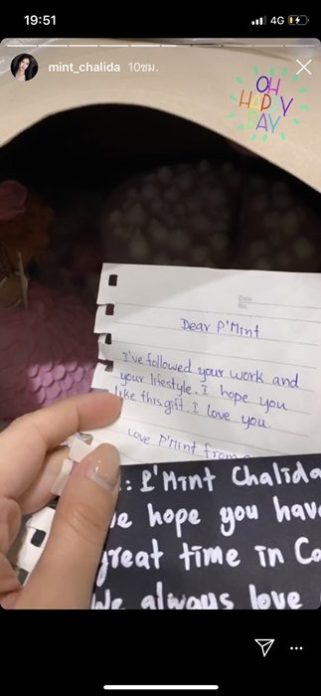 19:51
4G
mint_chalida 10ชม.
OH
HAPPY
DAY
Dear P'Mint
I've followed your work and
your lifestyle. I hope you
like this gift. I love you.
Love P'Mint from
: P'Mint Chalida
hope you hav
great time in Co
We always love